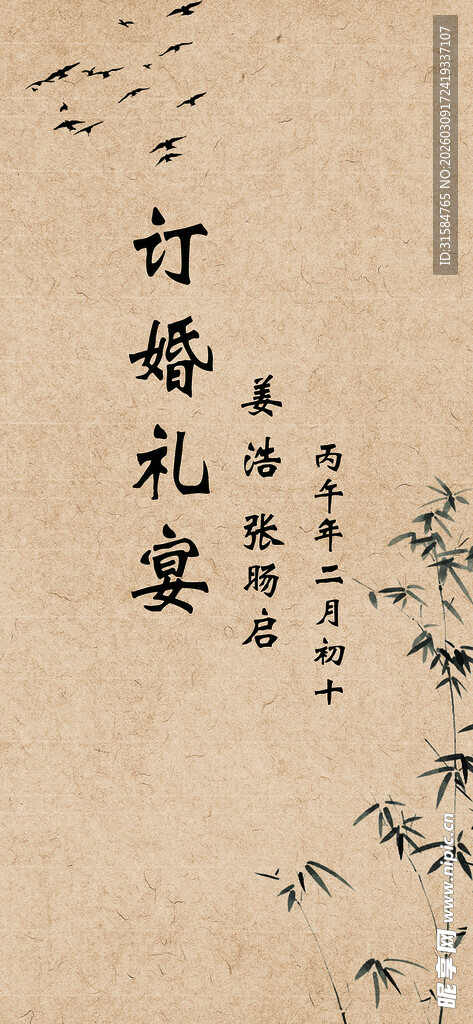 订婚礼宴
姜浩 张旸启
丙午年二月初十
ID:31584765 NO:20260309172419337107
昵享网 www.nipic.cn